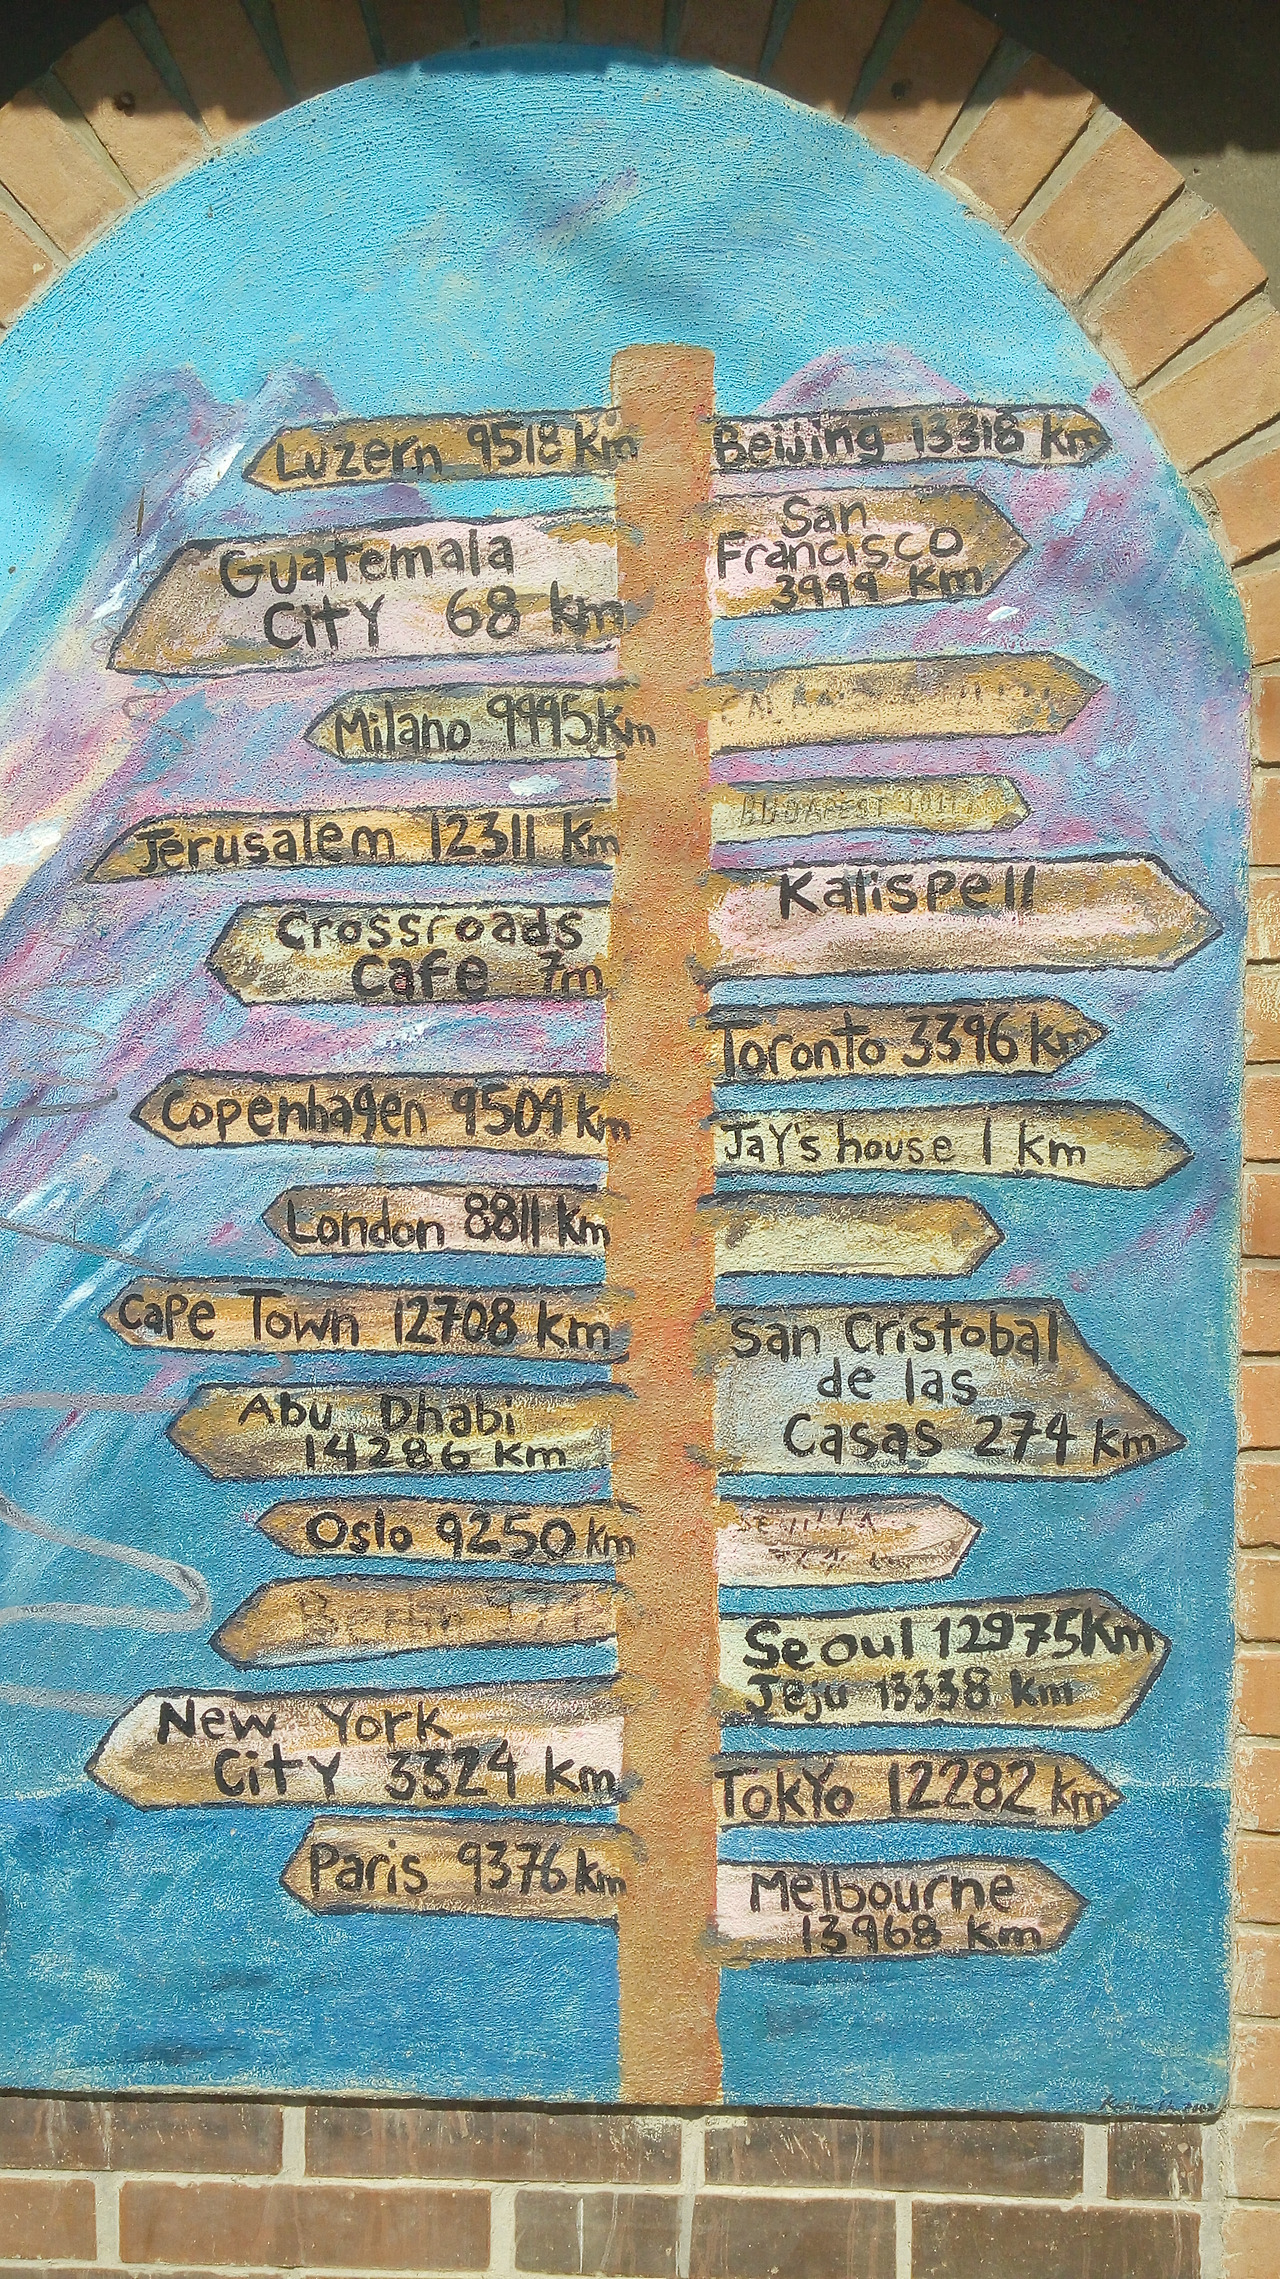 Luzern 9518 km
Guatemala
City 68 km
Milano 9995 km
Jerusalem 12311 km
Crossroads
Cafe 7m
Copenhagen 9509 km
London 8811 km
Cape Town 12708 km
Abu Dhabi
14286 km
Oslo 9250 km
Berlin
New York
City 3324 km
Paris 9376 km
Beijing 13318 km
San
Francisco
3999 Km
BUDAPEST
Kalispell
Toronto 3396 km
Jay's house 1 km
San Cristobal
de las
Casas 274 km
Seoul 12975Km
Jeju 13338 km
Tokyo 12282 km
Melbourne
13968 Km